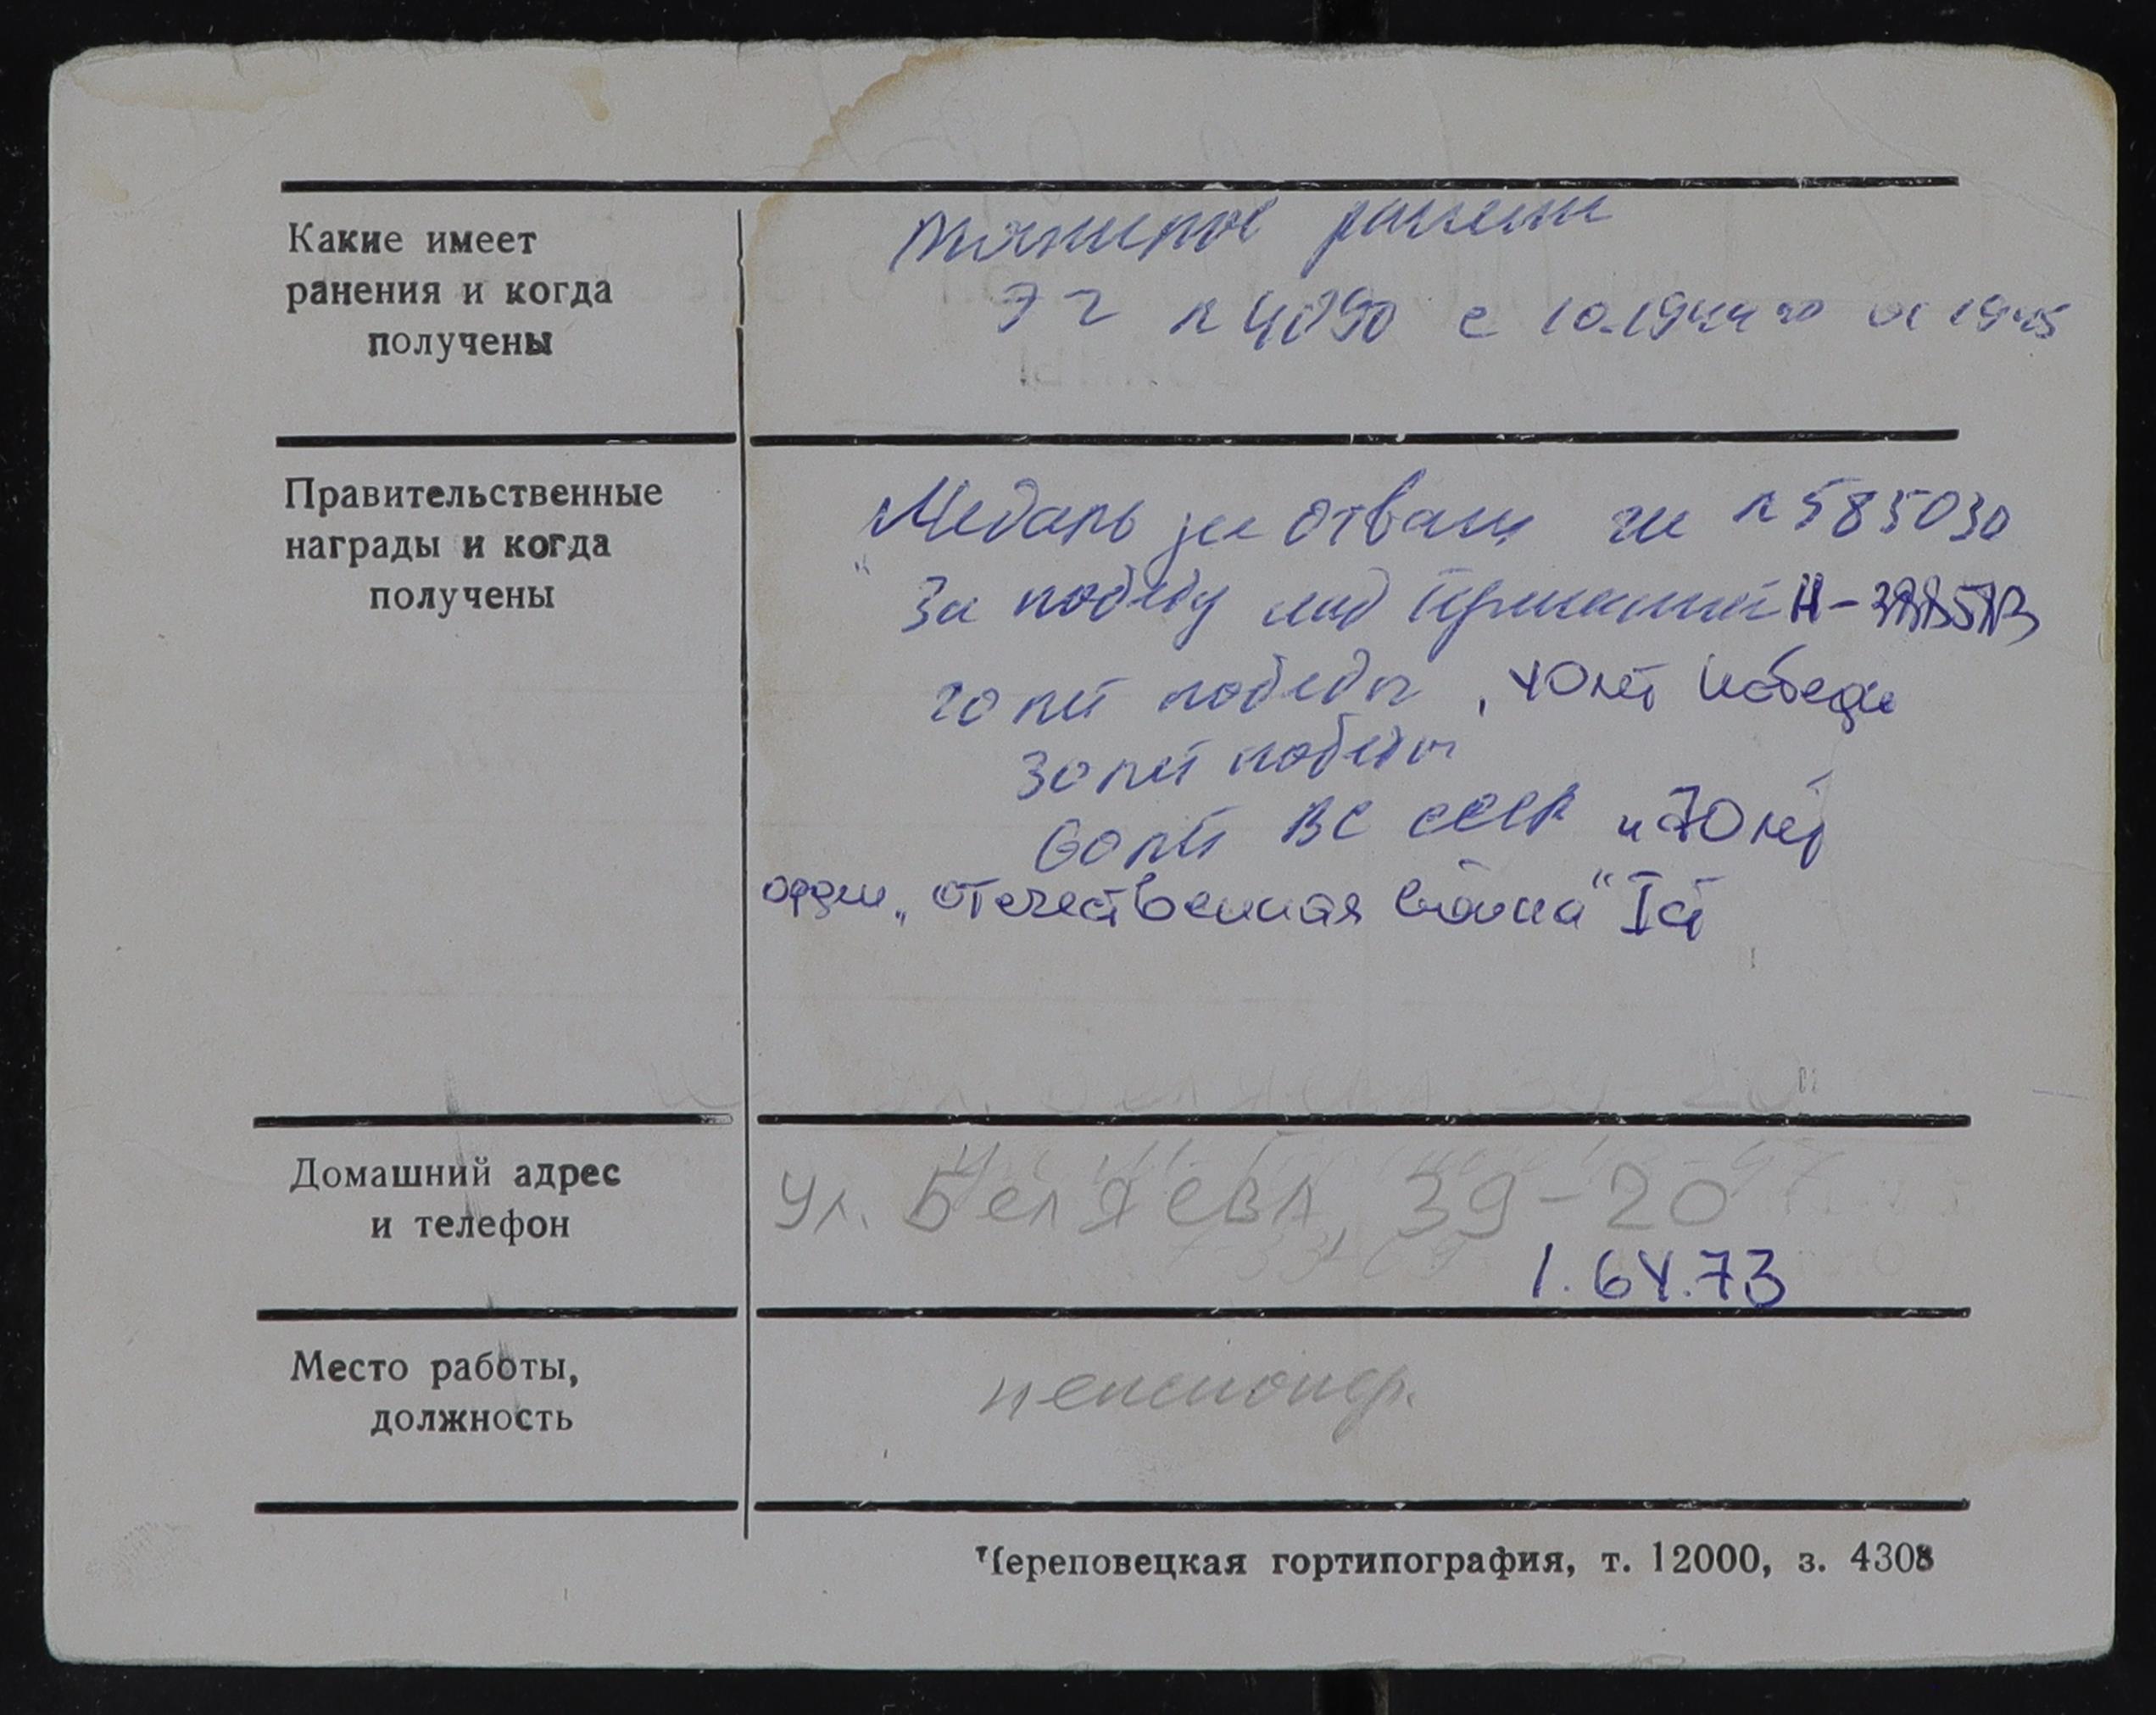 Какие имеет
ранения и когда
получены
тяжелое ранение
ЭГ № 4090 с 10.1944 по 01 1945
Правительственные
награды и когда
получены
Медаль за отвагу № 585030
"За победу над Германией Н-
20 лет победы, 40 лет Победы
30 лет победы
60 лет ВС СССР и 70 лет
орден „Отечественная война" I ст
Домашний адрес
и телефон
ул. Беляева, 39-20
1.64.73
Место работы,
должность
пенсионер.
Череповецкая гортипография, т. 12000, з. 4308